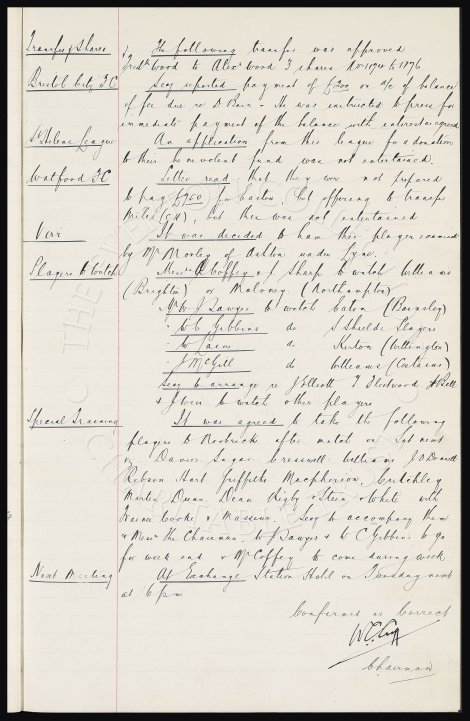 Transfer of Shares The following transfer was approved
Fredk Wood to Alexr Wood 3 shares Nos 1174 to 1176
Bristol City F.C Secy reported payment of £300 on a/c of balance
of fee due re D Barr - He was instructed to press for
immediate payment of the balance with interest as agreed
St Helens League An application from this league for a donation
to their benevolent fund was not entertained.
Watford F.C Letter read that they were not prepared
to pay £750 for Easton, but offering to transfer
but this was not entertained
It was decided to have this player examined
by Mr Morley of Ashton under Lyne.
Players to Watch Messrs A Coffey & J Sharp to watch Williams
(Brighton) or Maloney. (Northampton)
Mr W J Sawyer to watch Eaton (Barnsley)
" W C Gibbins do S Shields Players
" do Kirton (Withington)
" J McGill do Williams (Corinthians)
Secy to arrange re J Elliott T Fleetwood
& J Weir to watch other players
Special Training It was agreed to take the following
players to after match on Sat next
viz Davies Sagar Cresswell Williams J O'Donnell
Robson Hart Griffiths Macpherson Critchley
Martin Dunn Dean Rigby & Stein & White with
Trainer Cooke & Masseur. Secy to accompany them
& Messrs The Chairman. W J Sawyer & W C Gibbins to go
for week end & Mr Coffey to come during week.
Next Meeting At Exchange Station Hotel on Tuesday next
at 6 pm
Confirmed as Correct
Chairman